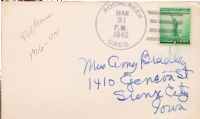 ROCKCREEK
MAR
31
P.M.
1942
OREG.
Miss Amy Bradley
1410 Geneva St
Sioux City
Iowa